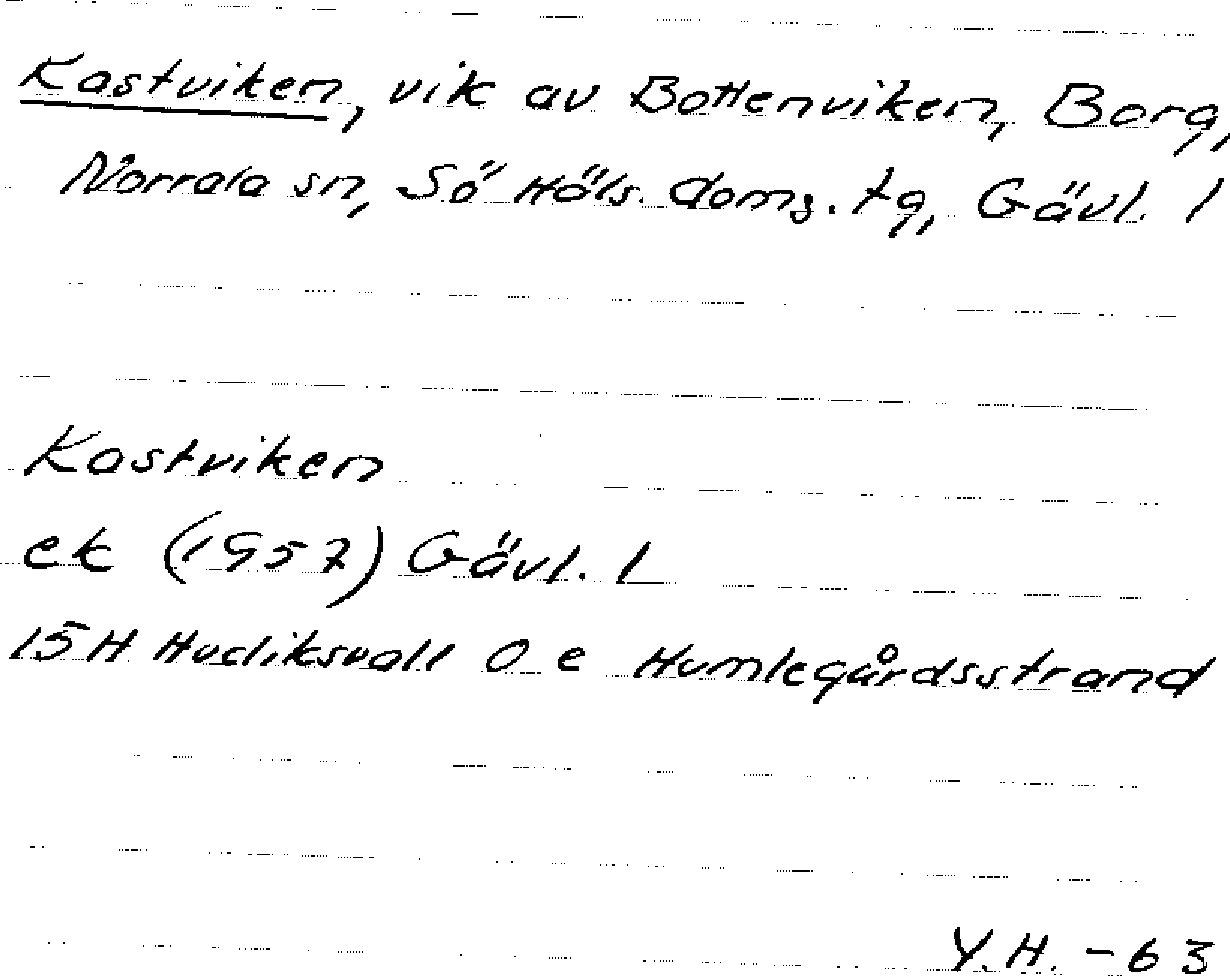 Kastviken, vik av Bottenviken, Borg,
Norrala sn, Sö Häls. doms. tg, Gävl. l
Kastviken
ek (1957) Gävl. l
15H Hudiksvall 0 e Humlegårdsstrand
Y.H. - 63